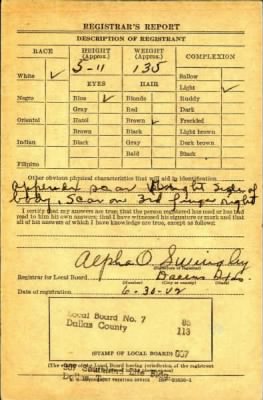 REGISTRAR'S REPORT
DESCRIPTION OF REGISTRANT
RACE HEIGHT (Approx.) WEIGHT (Approx.) COMPLEXION
5-11 135
White ✓ Sallow
EYES HAIR Light ✓
Negro Blue ✓ Blonde Ruddy
Gray Red Dark
Oriental Hazel Brown ✓ Freckled
Brown Black Light brown
Indian Black Gray Dark brown
Bald Black
Filipino
Other obvious physical characteristics that will aid in identification
Appendix scar right side of
body, Scar on 3rd finger right
I certify that my answers are true; that the person registered has read or has had
read to him his own answers; that I have witnessed his signature or mark and that
all of his answers of which I have knowledge are true, except as follows:
Alpha O.
(Signature of registrar)
Registrar for Local Board
(Number) (City or county) (State)
Date of registration 6-30-42
Local Board No. 7 85
Dallas County 113
(STAMP OF LOCAL BOARD)
(The stamp of the Local Board having jurisdiction of the registrant
U. S. GOVERNMENT PRINTING OFFICE